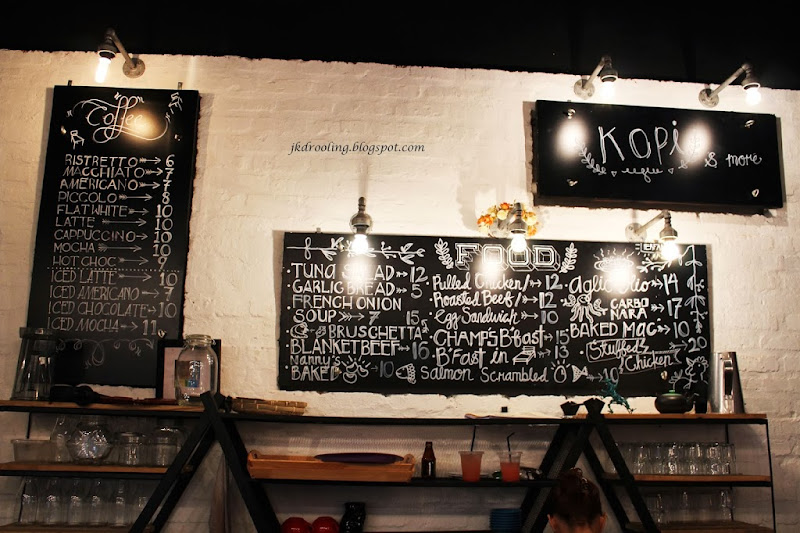 Coffee
RISTRETTO 6
MACCHIATO 7
AMERICANO 7
PICCOLO 8
FLAT WHITE 10
LATTE 10
CAPPUCCINO 10
MOCHA 10
HOT CHOC 9
ICED LATTE 10
ICED AMERICANO 7
ICED CHOCOLATE 10
ICED MOCHA 11
jkdrooling.blogspot.com
KOPI
& more
FOOD
TUNA SALAD 12
GARLIC BREAD 5
FRENCH ONION
SOUP 7
BRUSCHETTA 15
BLANKET BEEF 16
Nanny's
BAKED
Pulled Chicken/ 12
Roasted Beef/ 12
Egg Sandwich 10
CHAMP'S B'fast 15
B'Fast in 13
Salmon Scrambled 10
Aglio Olio 14
CARBO
NARA 17
BAKED MAC 10
Stuffed
Chicken 20